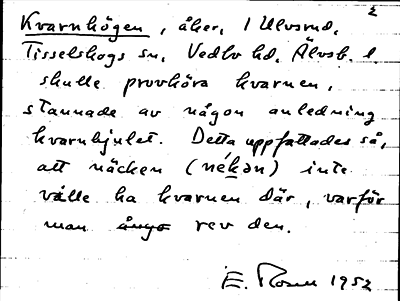 2
Kvarnhögen, åker, 1 Ulvsrud,
Tisselskogs sn, Vedbo hd, Älvsb. l
skulle provköra kvarnen,
stannade av någon anledning
kvarnhjulet. Detta uppfattades så,
att näcken (nékən) inte
ville ha kvarnen där, varför
man ångo rev den.
E. Rosen 1952